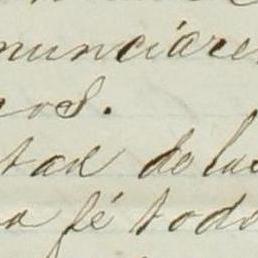 nunciare
nos.
tad de las
a fé todo